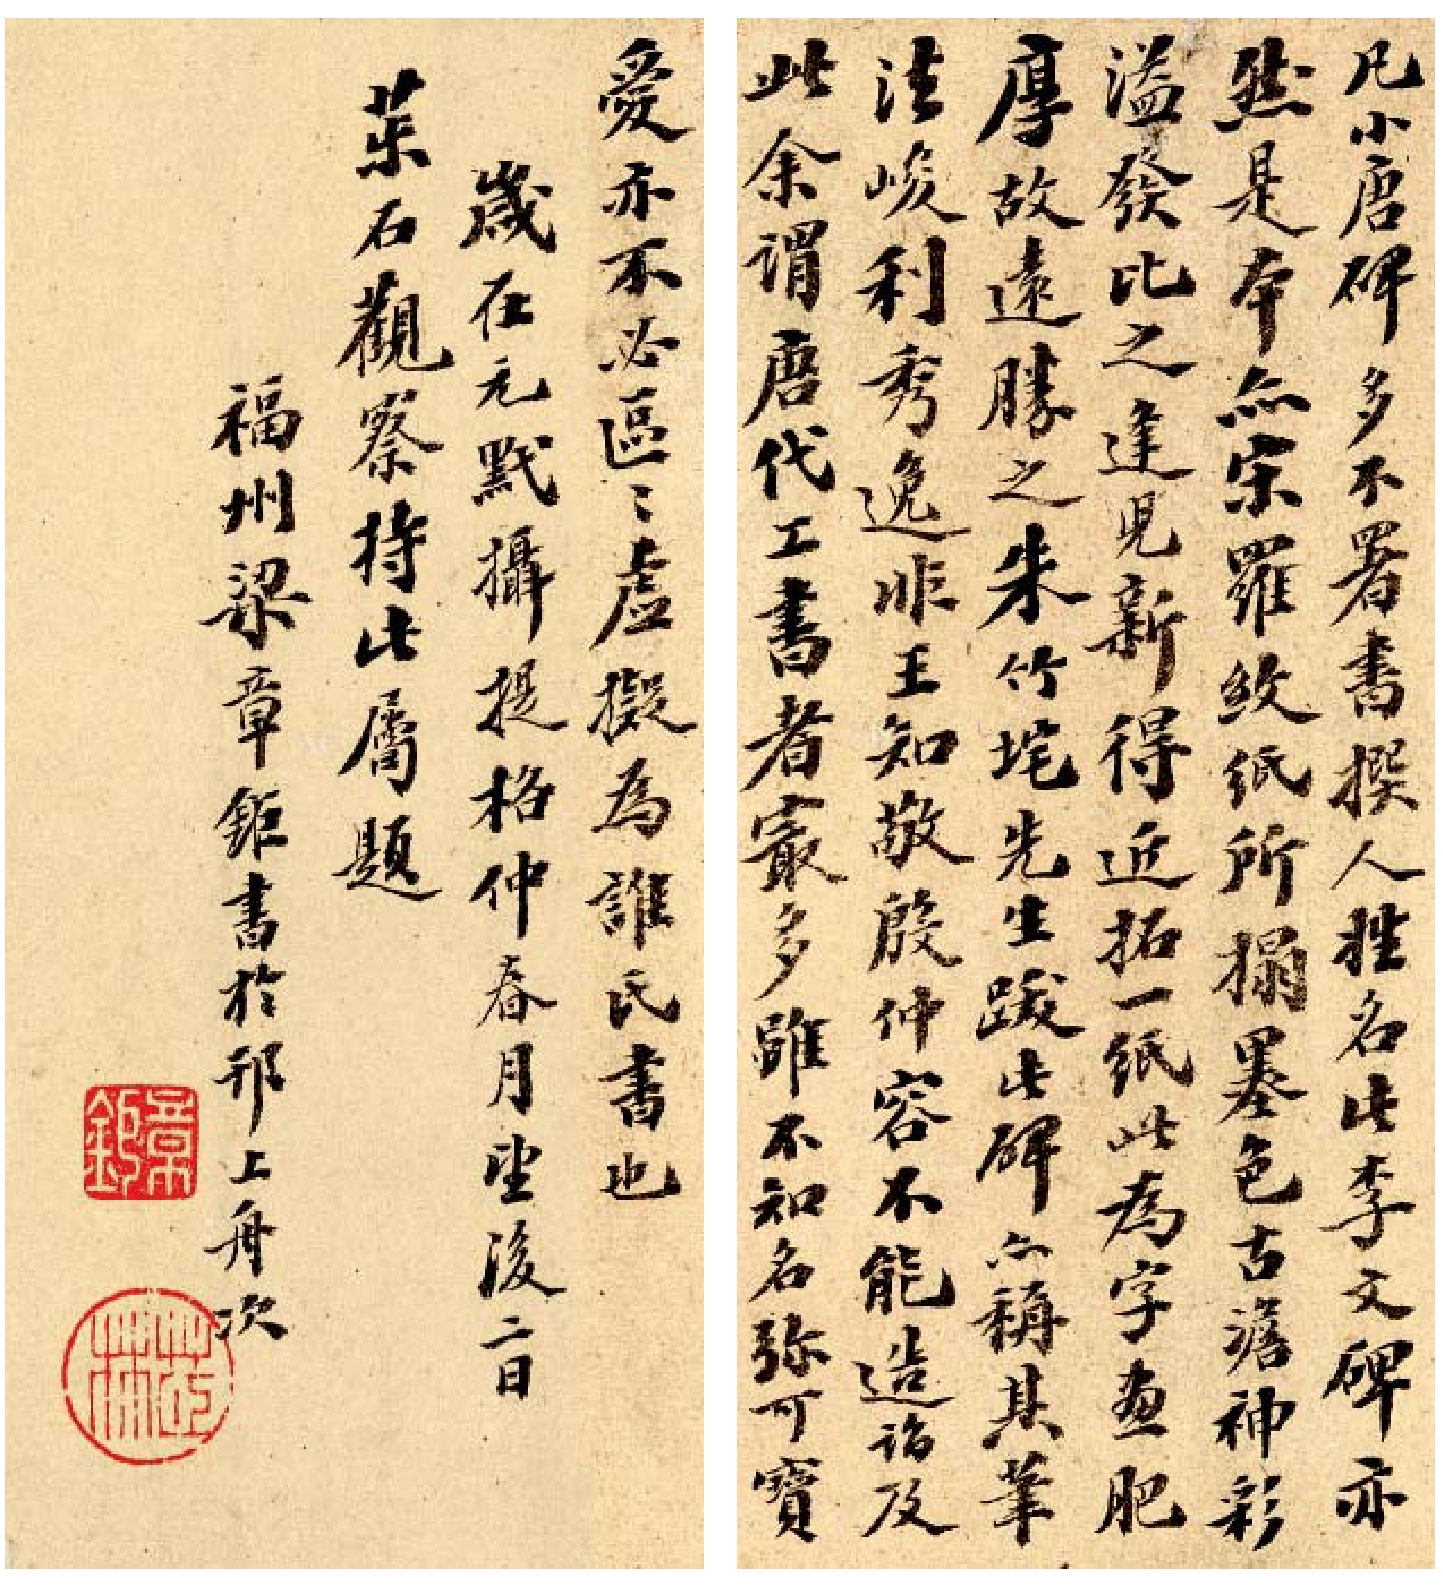 凡小唐碑多不署書撰人姓名此李文碑亦
然是本亦宋羅紋紙所搨墨色古澹神彩
溢發比之逢児新得近拓一紙此為字畫肥
厚故遠勝之朱竹垞先生跋此碑亦稱其筆
法峻利秀逸非王知敬殷仲容不能造詣及
此余謂唐代工書者最多雖不知名弥可寶
愛亦不必區〻虛擬為誰氏書也
歲在元黓攝提格仲春月望後二日
茮石觀察持此屬題
福州梁章鉅書於邗上舟次
章鉅
茝林